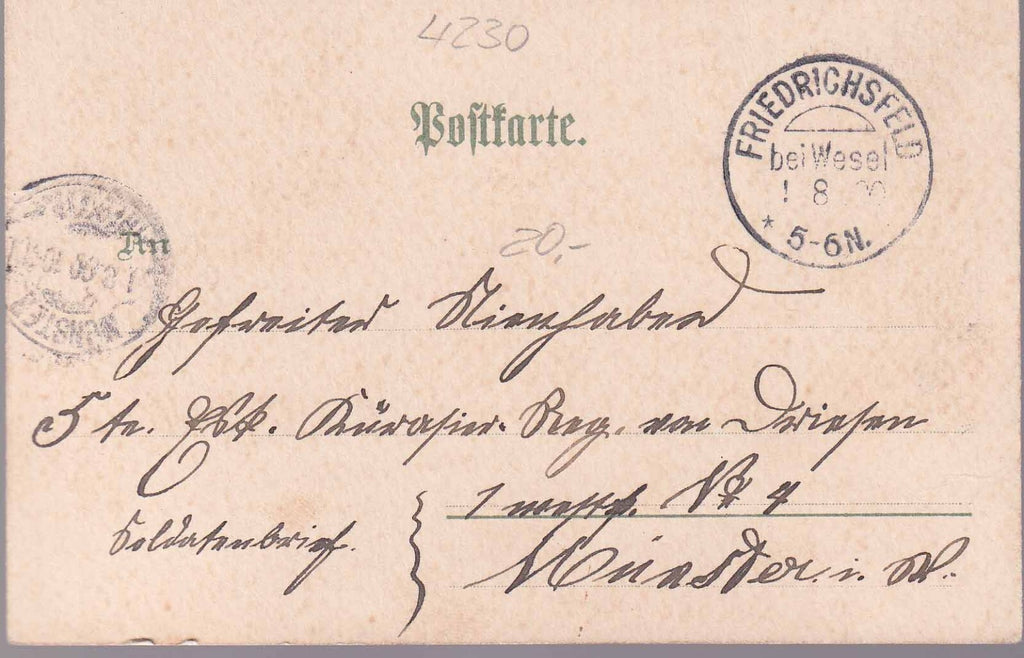 4230
Postkarte.
FRIEDRICHSFELD
bei Wesel
1 8 00
* 5-6N.
An
MÜNSTER
20,-
Gefreiter Nienhaber
5 te. Esk. Kürasier-Reg. von Driesen
1 westf. Nr 4
Soldatenbrief.
Münster i. W.